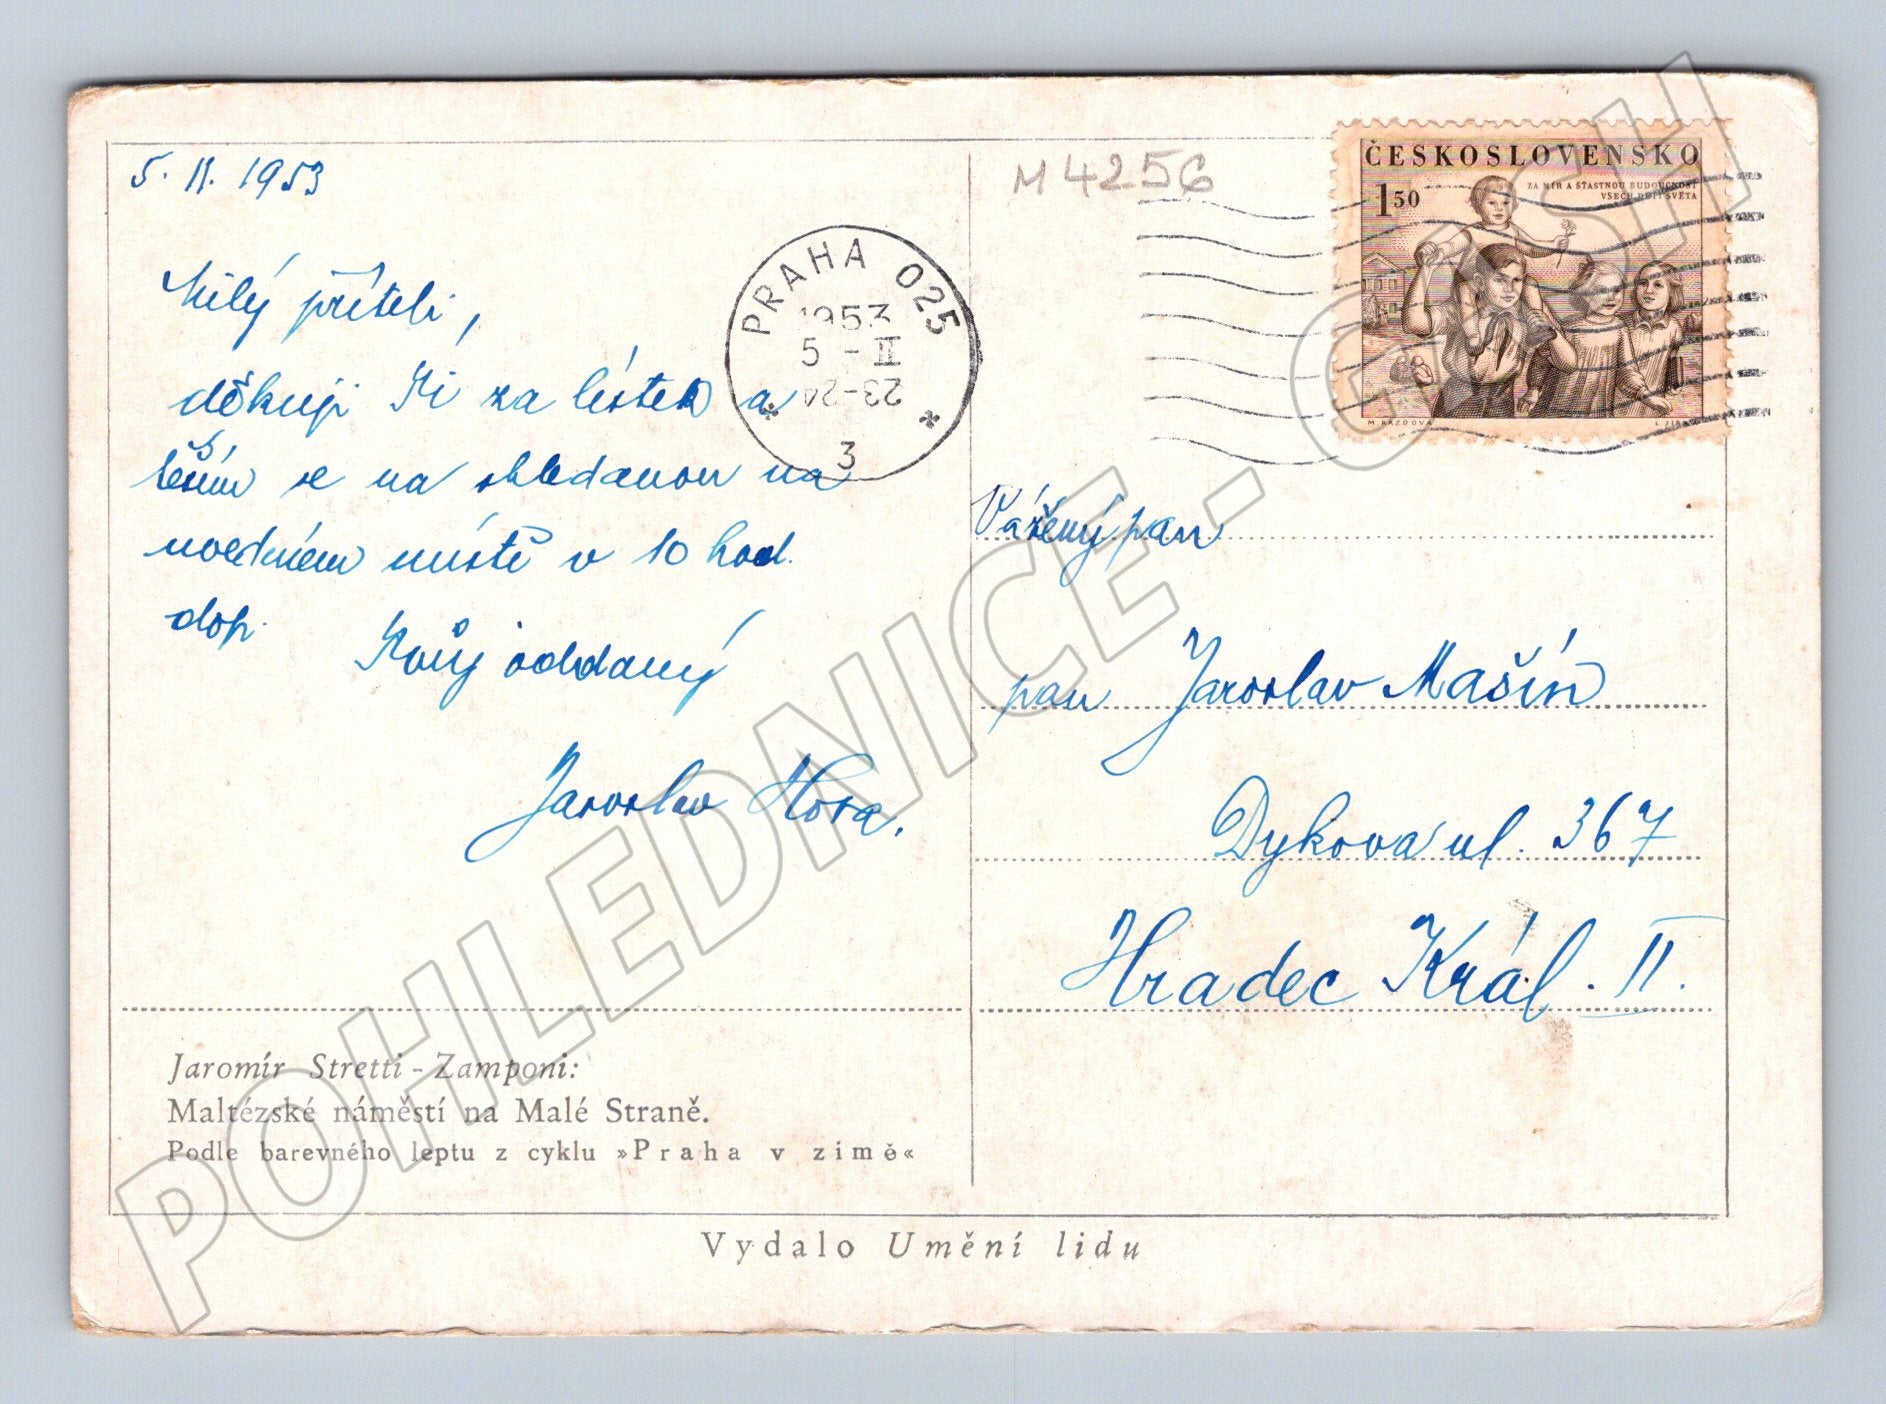 5. II. 1953
M 4256
ČESKOSLOVENSKO
1 50
ZA MÍR A ŠŤASTNOU BUDOUCNOST
VŠECH DĚTÍ SVĚTA
PRAHA 025
1953
5 - II
23-24
3
Milý příteli,
děkuji Ti za lístek a
těším se na shledanou na
uvedném místě v 10 hod.
dop.
Tvůj oddaný
Jaroslav Hora.
Vážený pan
pan Jaroslav Mašín
Dykova ul. 367
Hradec Král. II.
Jaromír Stretti - Zamponi:
Maltézské náměstí na Malé Straně.
Podle barevného leptu z cyklu »Praha v zimě«
Vydalo Umění lidu
POHLEDNICE - CASH